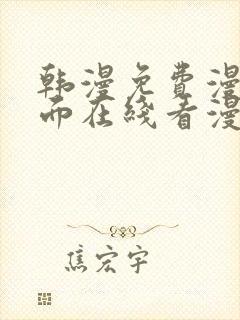 韩漫免费漫
而在线看漫
焦宏宇